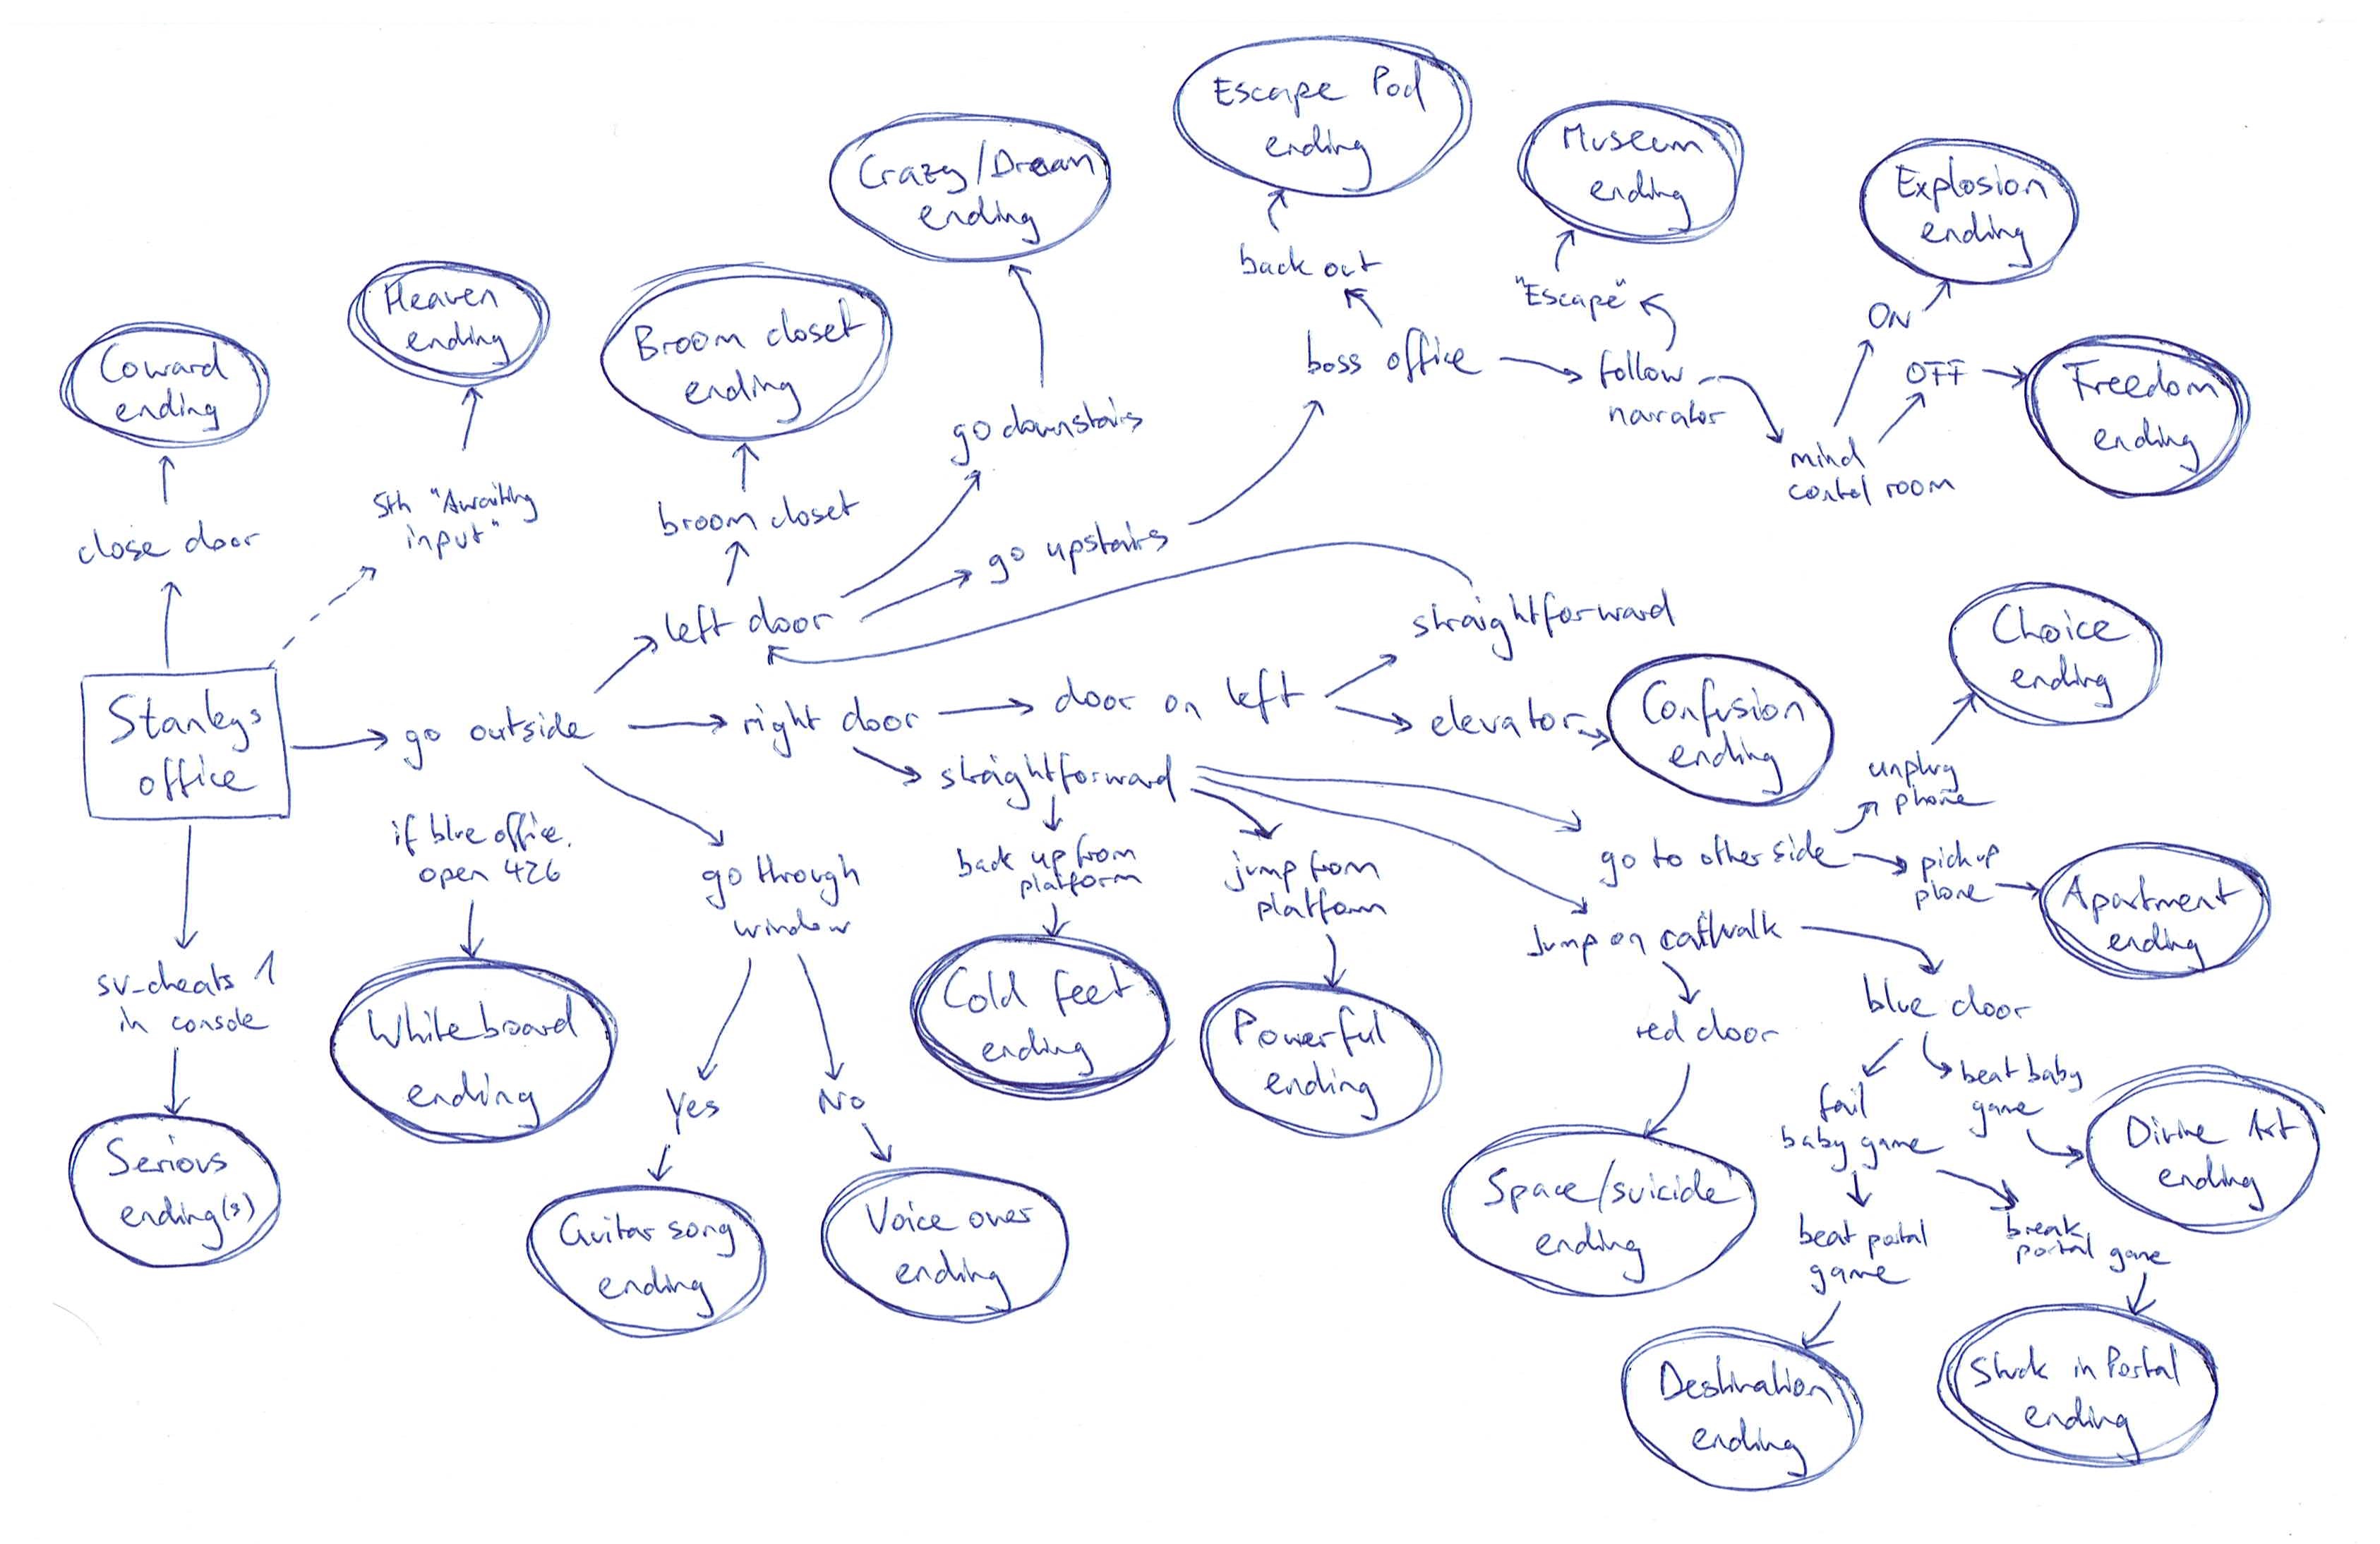 Escape Pod
ending
Museum
ending
Crazy/Dream
ending
Explosion
ending
back out
"Escape"
Heaven
ending
Broom closet
ending
ON
Coward
ending
boss office
follow
narrator
OFF
Freedom
ending
go downstairs
mind
control room
5th "Awaiting
input"
broom closet
close door
go upstairs
left door
straightforward
Choice
ending
Stanleys
office
go outside
right door
door on left
elevator
Confusion
ending
straightforward
unplug
phone
if blue office,
open 426
go through
window
back up from
platform
jump from
platform
go to other side
pick up
phone
Apartment
ending
Jump on catwalk
sv_cheats 1
in console
White board
ending
Cold feet
ending
Powerful
ending
red door
blue door
Yes
No
fail
baby game
beat baby
game
Serious
ending(s)
Guitar song
ending
Voice over
ending
Space/suicide
ending
Divine Art
ending
beat portal
game
break
portal game
Destination
ending
Stuck in Portal
ending